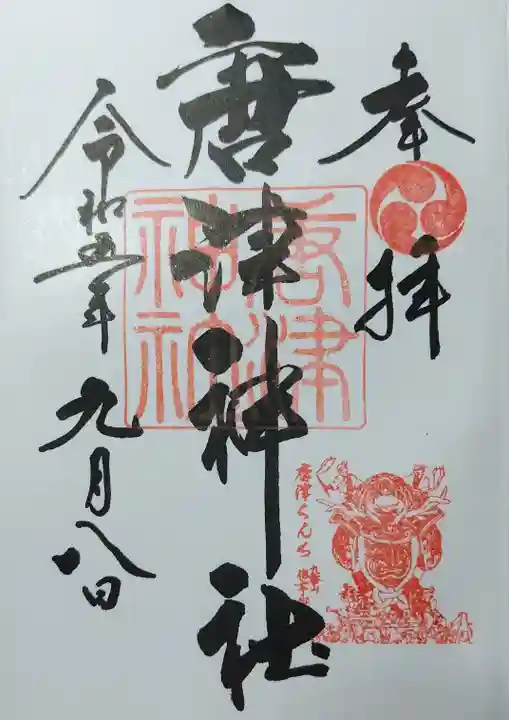 奉拝
唐津神社
唐津神社
唐津くんち
令和五年
九月八日